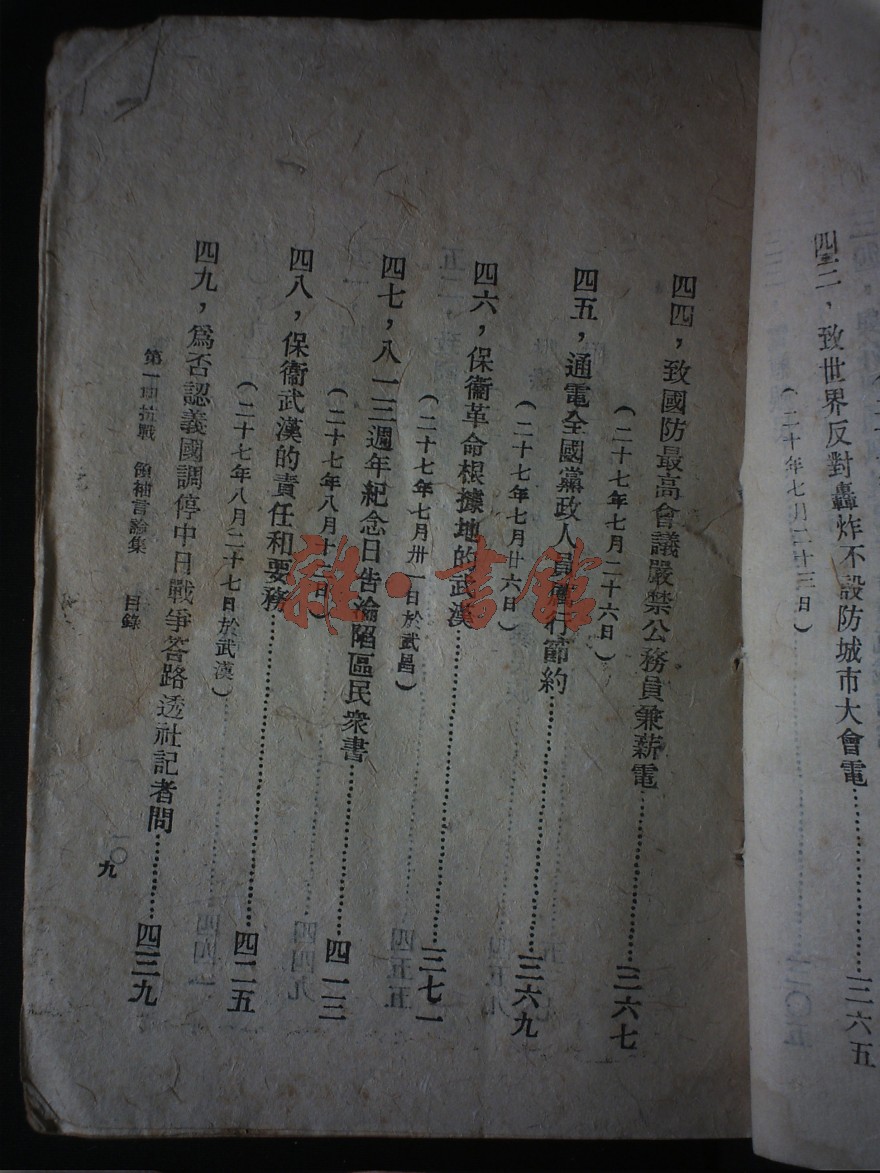 四三,致世界反對轟炸不設防城市大會電……三六五
(二十年七月二十三日)
四四,致國防最高會議嚴禁公務員兼薪電……三六七
(二十七年七月二十六日)
四五,通電全國黨政人員厲行節約……三六九
(二十七年七月廿六日)
四六,保衞革命根據地的武漢……三七一
(二十七年七月卅一日於武昌)
四七,八一三週年紀念日告淪陷區民衆書……四一三
(二十七年八月十三日)
四八,保衞武漢的責任和要務……四二五
(二十七年八月二十七日於武漢)
四九,爲否認義國調停中日戰爭答路透社記者問……四三九
第一期抗戰 領袖言論集 目錄
九
雜·書館